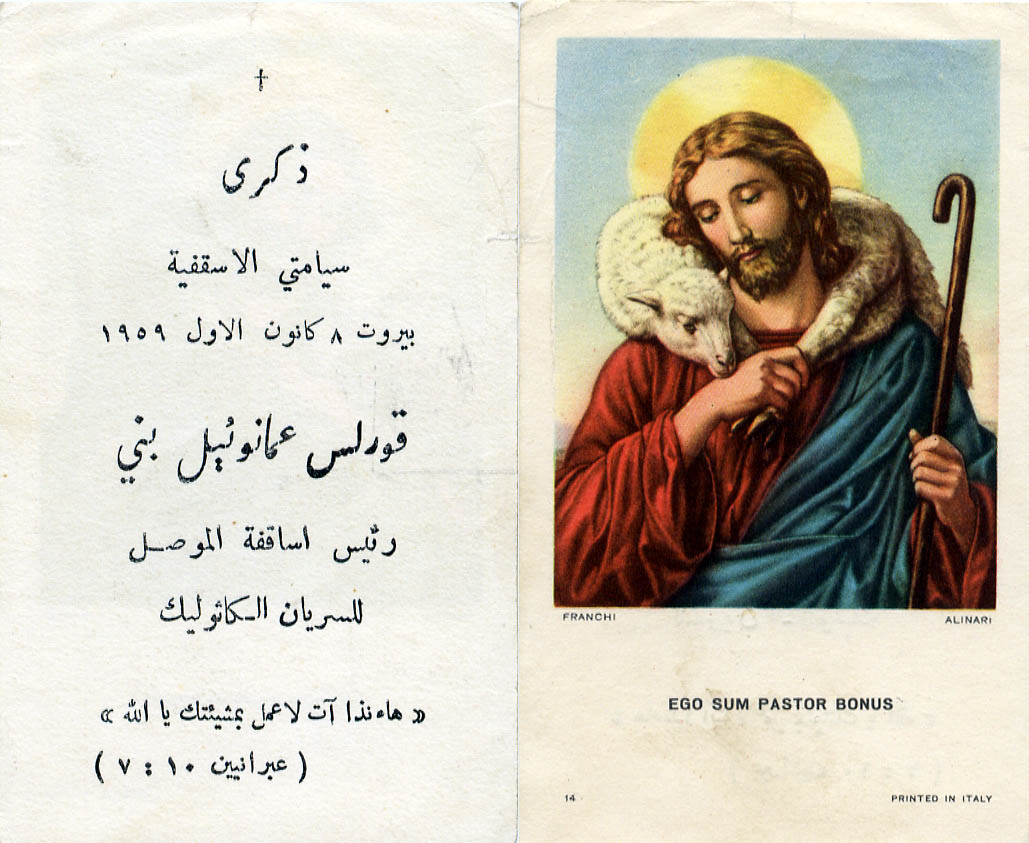 ذكرى
سيامتي الاسقفية
بيروت ٨ كانون الاول ١٩٥٩
قورلس عمانوئيل بني
رئيس اساقفة الموصل
للسريان الكاثوليك
« هاءنذا آت لاعمل بمشيئتك يا الله »
( عبرانيين ١٠ : ٧ )
FRANCHI
ALINARI
EGO SUM PASTOR BONUS
14
PRINTED IN ITALY